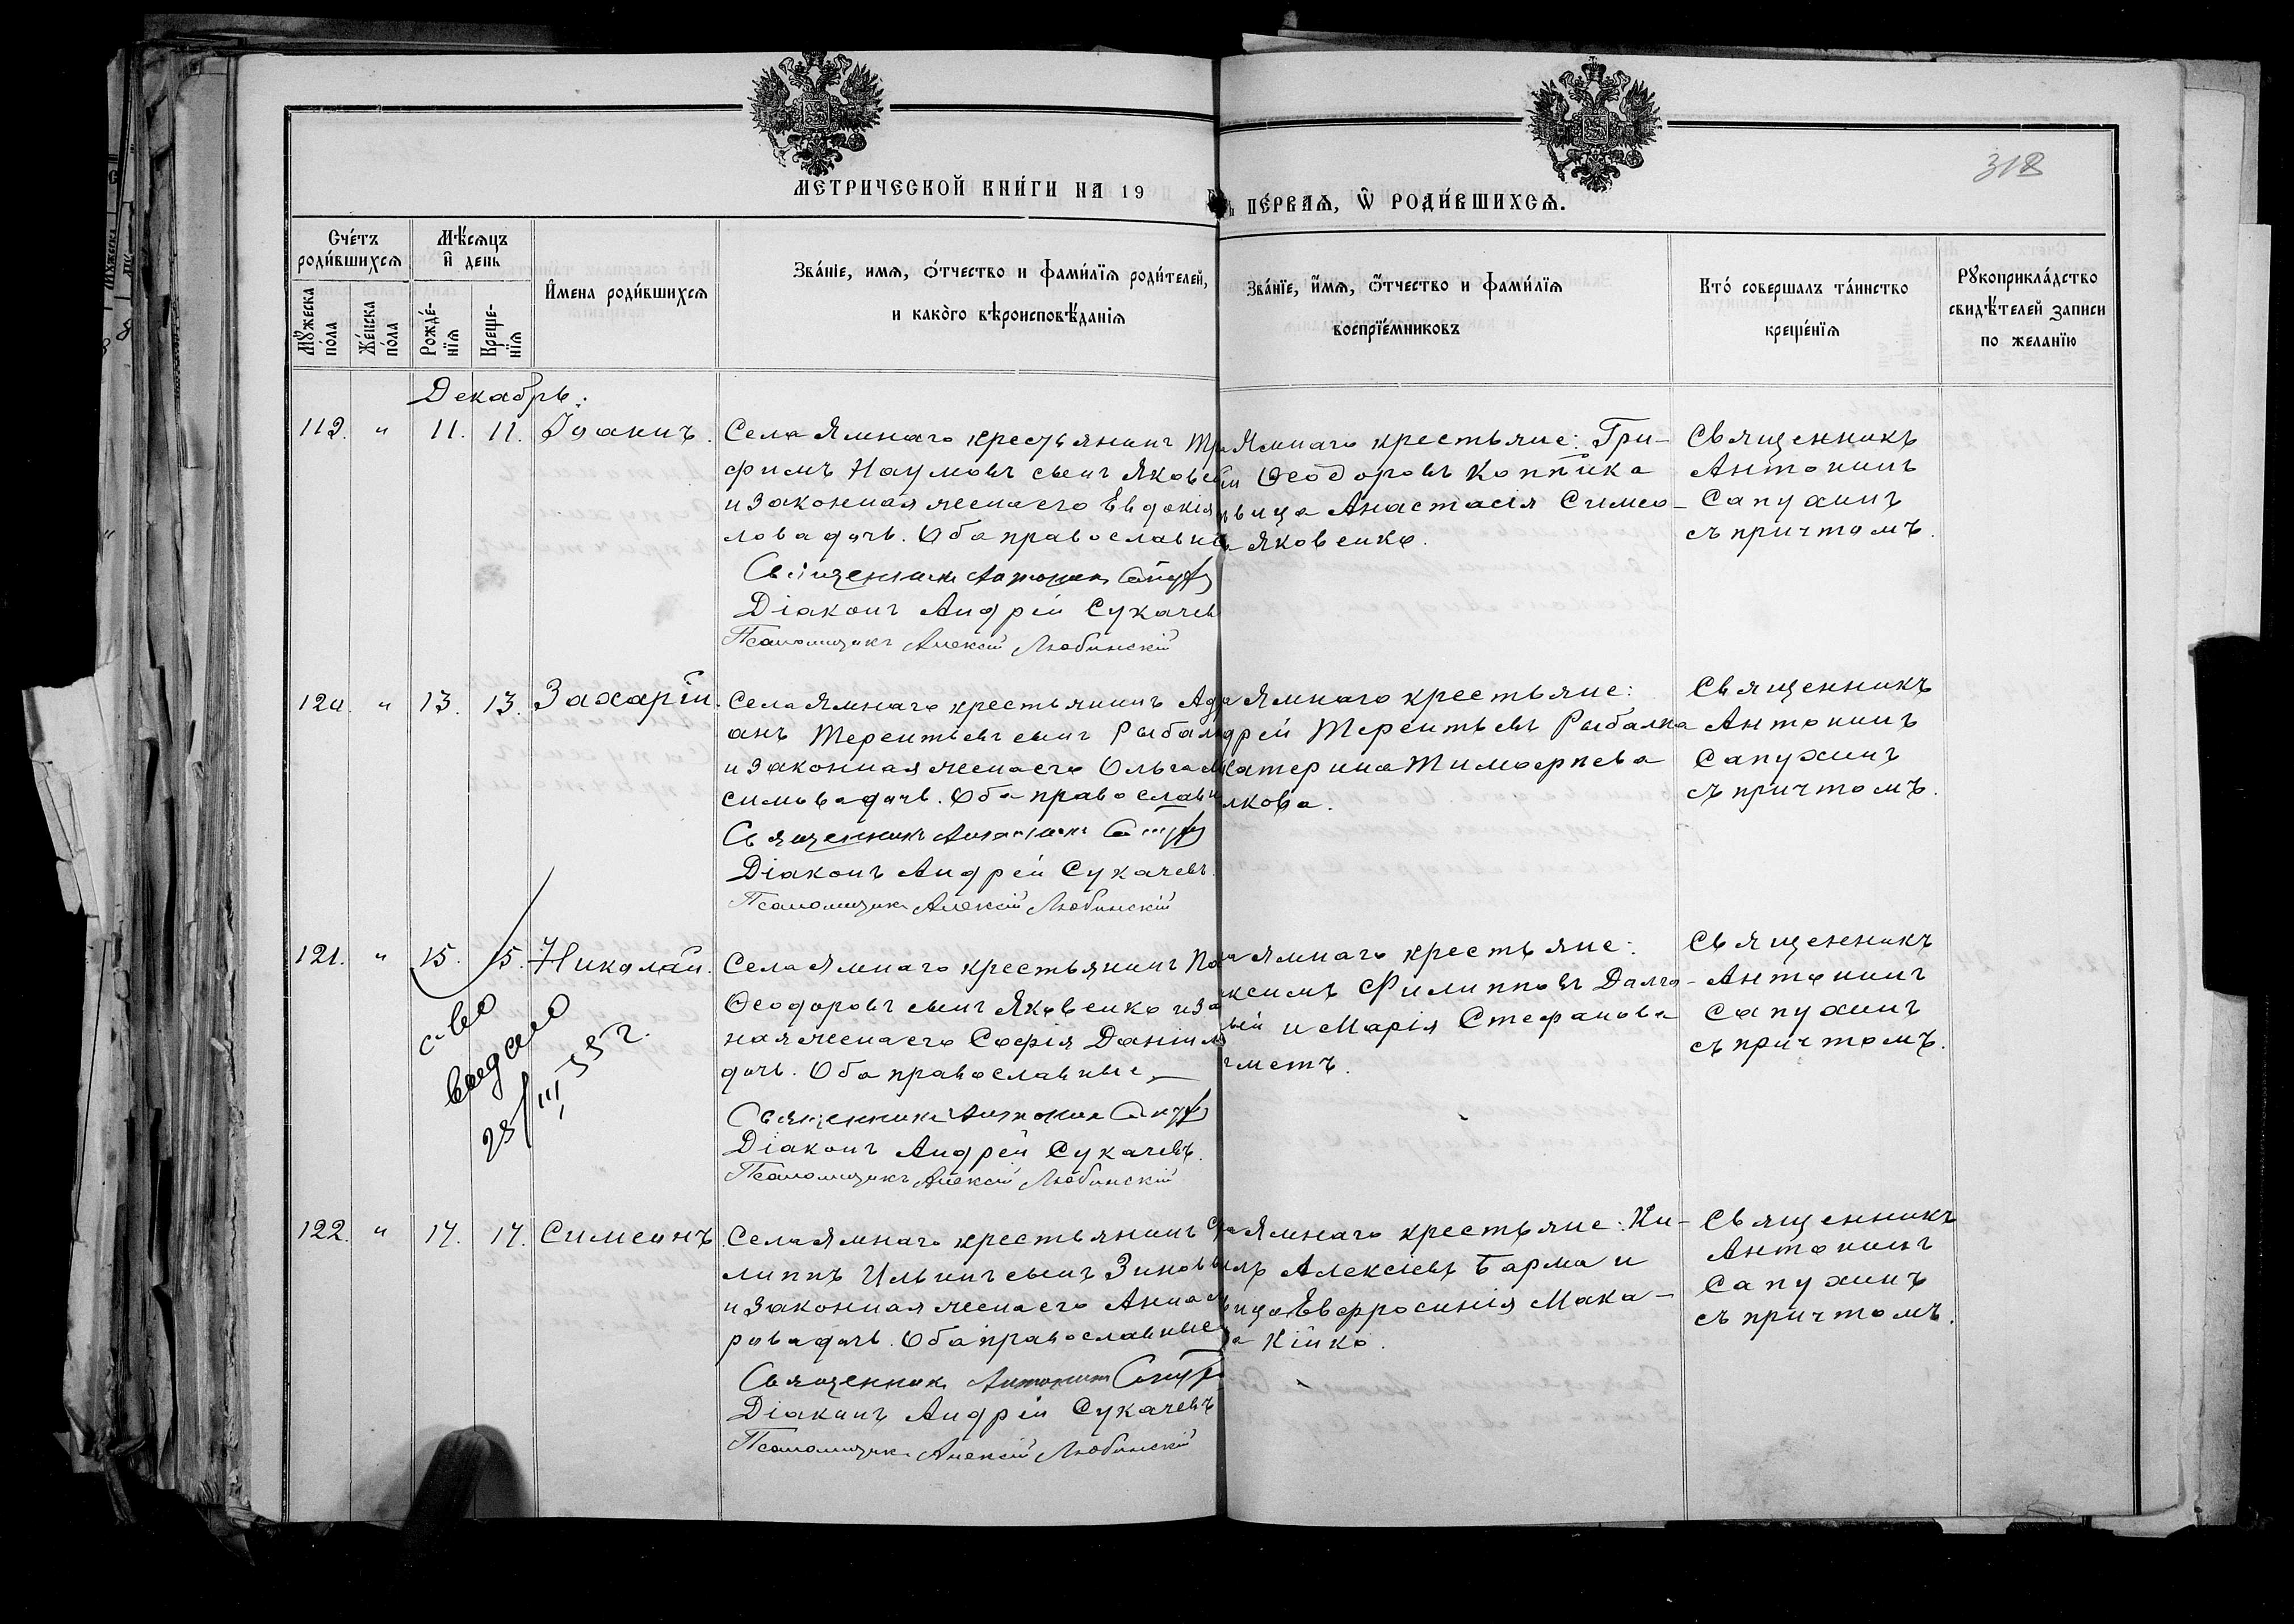 МЕТРИЧЕСКОЙ КНИ́ГИ НА 19
ПЕ́РВАѦ, Ѡ҆ РОДИ́ВШИХСѦ.
318
Сче́тъ роди́вшихсѧ
Мѣ́сѧцъ и҆ день
И҆мена роди́вшихсѧ
Зва́нїе, имѧ, о́тчество и фами́лїѧ роди́телей,
и како́го вѣроисповѣ́данїѧ
Зва́нїе, и҆́мѧ, ѻ҆́тчество и фами́лїѧ
воспрїе́мниковъ
Кто́ совершалъ та́инство
креще́нїѧ
Рꙋкоприкла́дство
свидѣ́телей записи
по желанїю
Мꙋжеска по́ла
Же́нска по́ла
Рожде́-нїѧ
Креще-нїѧ
Декабрь.
119. " 11. 11. Іоаннъ.
Села Ямнаго крестьянинъ Тро
фимъ Наумовъ сынъ Яковен
и законная жена его Евдокія
лова дочь. Оба православн
Священникъ Антонин Сапух
Діаконъ Андрей Сукачев
Псаломщикъ Алексій Любинскій
Ямнаго крестьяне: Гри-
Ѳеодоровъ Коппика
вица Анастасія Симео-
Яковенко.
Священникъ
Антонинъ
Сапухинъ
съ причтомъ.
120. " 13. 13. Захарій.
Села Ямнаго крестьянинъ Адрі
анъ Терентьевъ сынъ Рыбал
и законная жена его Ольга М
симова дочь. Оба православн
Священникъ Антонин Сапух
Діаконъ Андрей Сукачевъ.
Псаломщикъ Алексій Любинскій
Ямнаго крестьяне:
дрей Терентьевъ Рыбалка
катерина Тимоѳеева
лкова.
Священникъ
Антонинъ
Сапухинъ
съ причтомъ.
121. " 15. 15. Николай.
Села Ямнаго крестьянинъ Па
Ѳеодоровъ сынъ Яковенко и за
ная жена его Софія Даніил
дочь. Оба православные
Священникъ Антонин Сапух
Діаконъ Андрей Сукачевъ.
Псаломщикъ Алексій Любинскій
Ямнаго крестьяне:
ксимъ Филипповъ Долго-
вій и Марія Стефанова
Священникъ
Антонинъ
Сапухинъ
съ причтомъ.
с-во
выдано
28/III 55 г.
122. " 17. 17. Симеонъ.
Села Ямнаго крестьянинъ Фи
липпъ Ильинъ сынъ Зиновь
и законная жена его Анна
рова дочь. Оба православные
Священник Антонин Сапух
Діаконъ Андрей Сукачевъ
Псаломщикъ Алексій Любинскій
Ямнаго крестьяне: Ки-
илъ Алексіевъ Барма и
вица Евфросинія Мака-
Кійко.
Священникъ
Антонинъ
Сапухинъ
съ причтомъ.